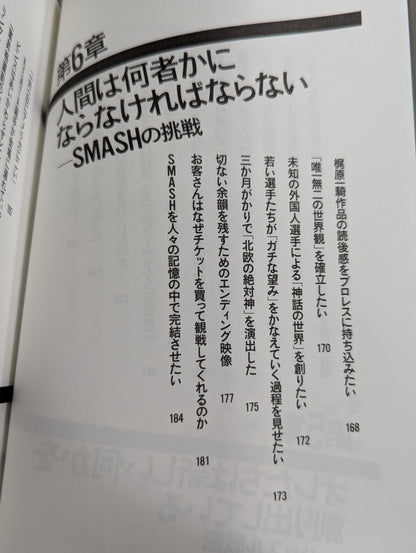 第6章
人間は何者かに
ならなければならない
―SMASHの挑戦
梶原一騎作品の読後感をプロレスに持ち込みたい 168
「唯一無二の世界観」を確立したい 170
未知の外国人選手による「神話の世界」を創りたい 172
若い選手たちが「ガチな望み」をかなえていく過程を見せたい 173
三か月がかりで「北欧の絶対神」を演出した 175
切ない余韻を残すためのエンディング映像 177
お客さんはなぜチケットを買って観戦してくれるのか 181
SMASHを人々の記憶の中で完結させたい 184